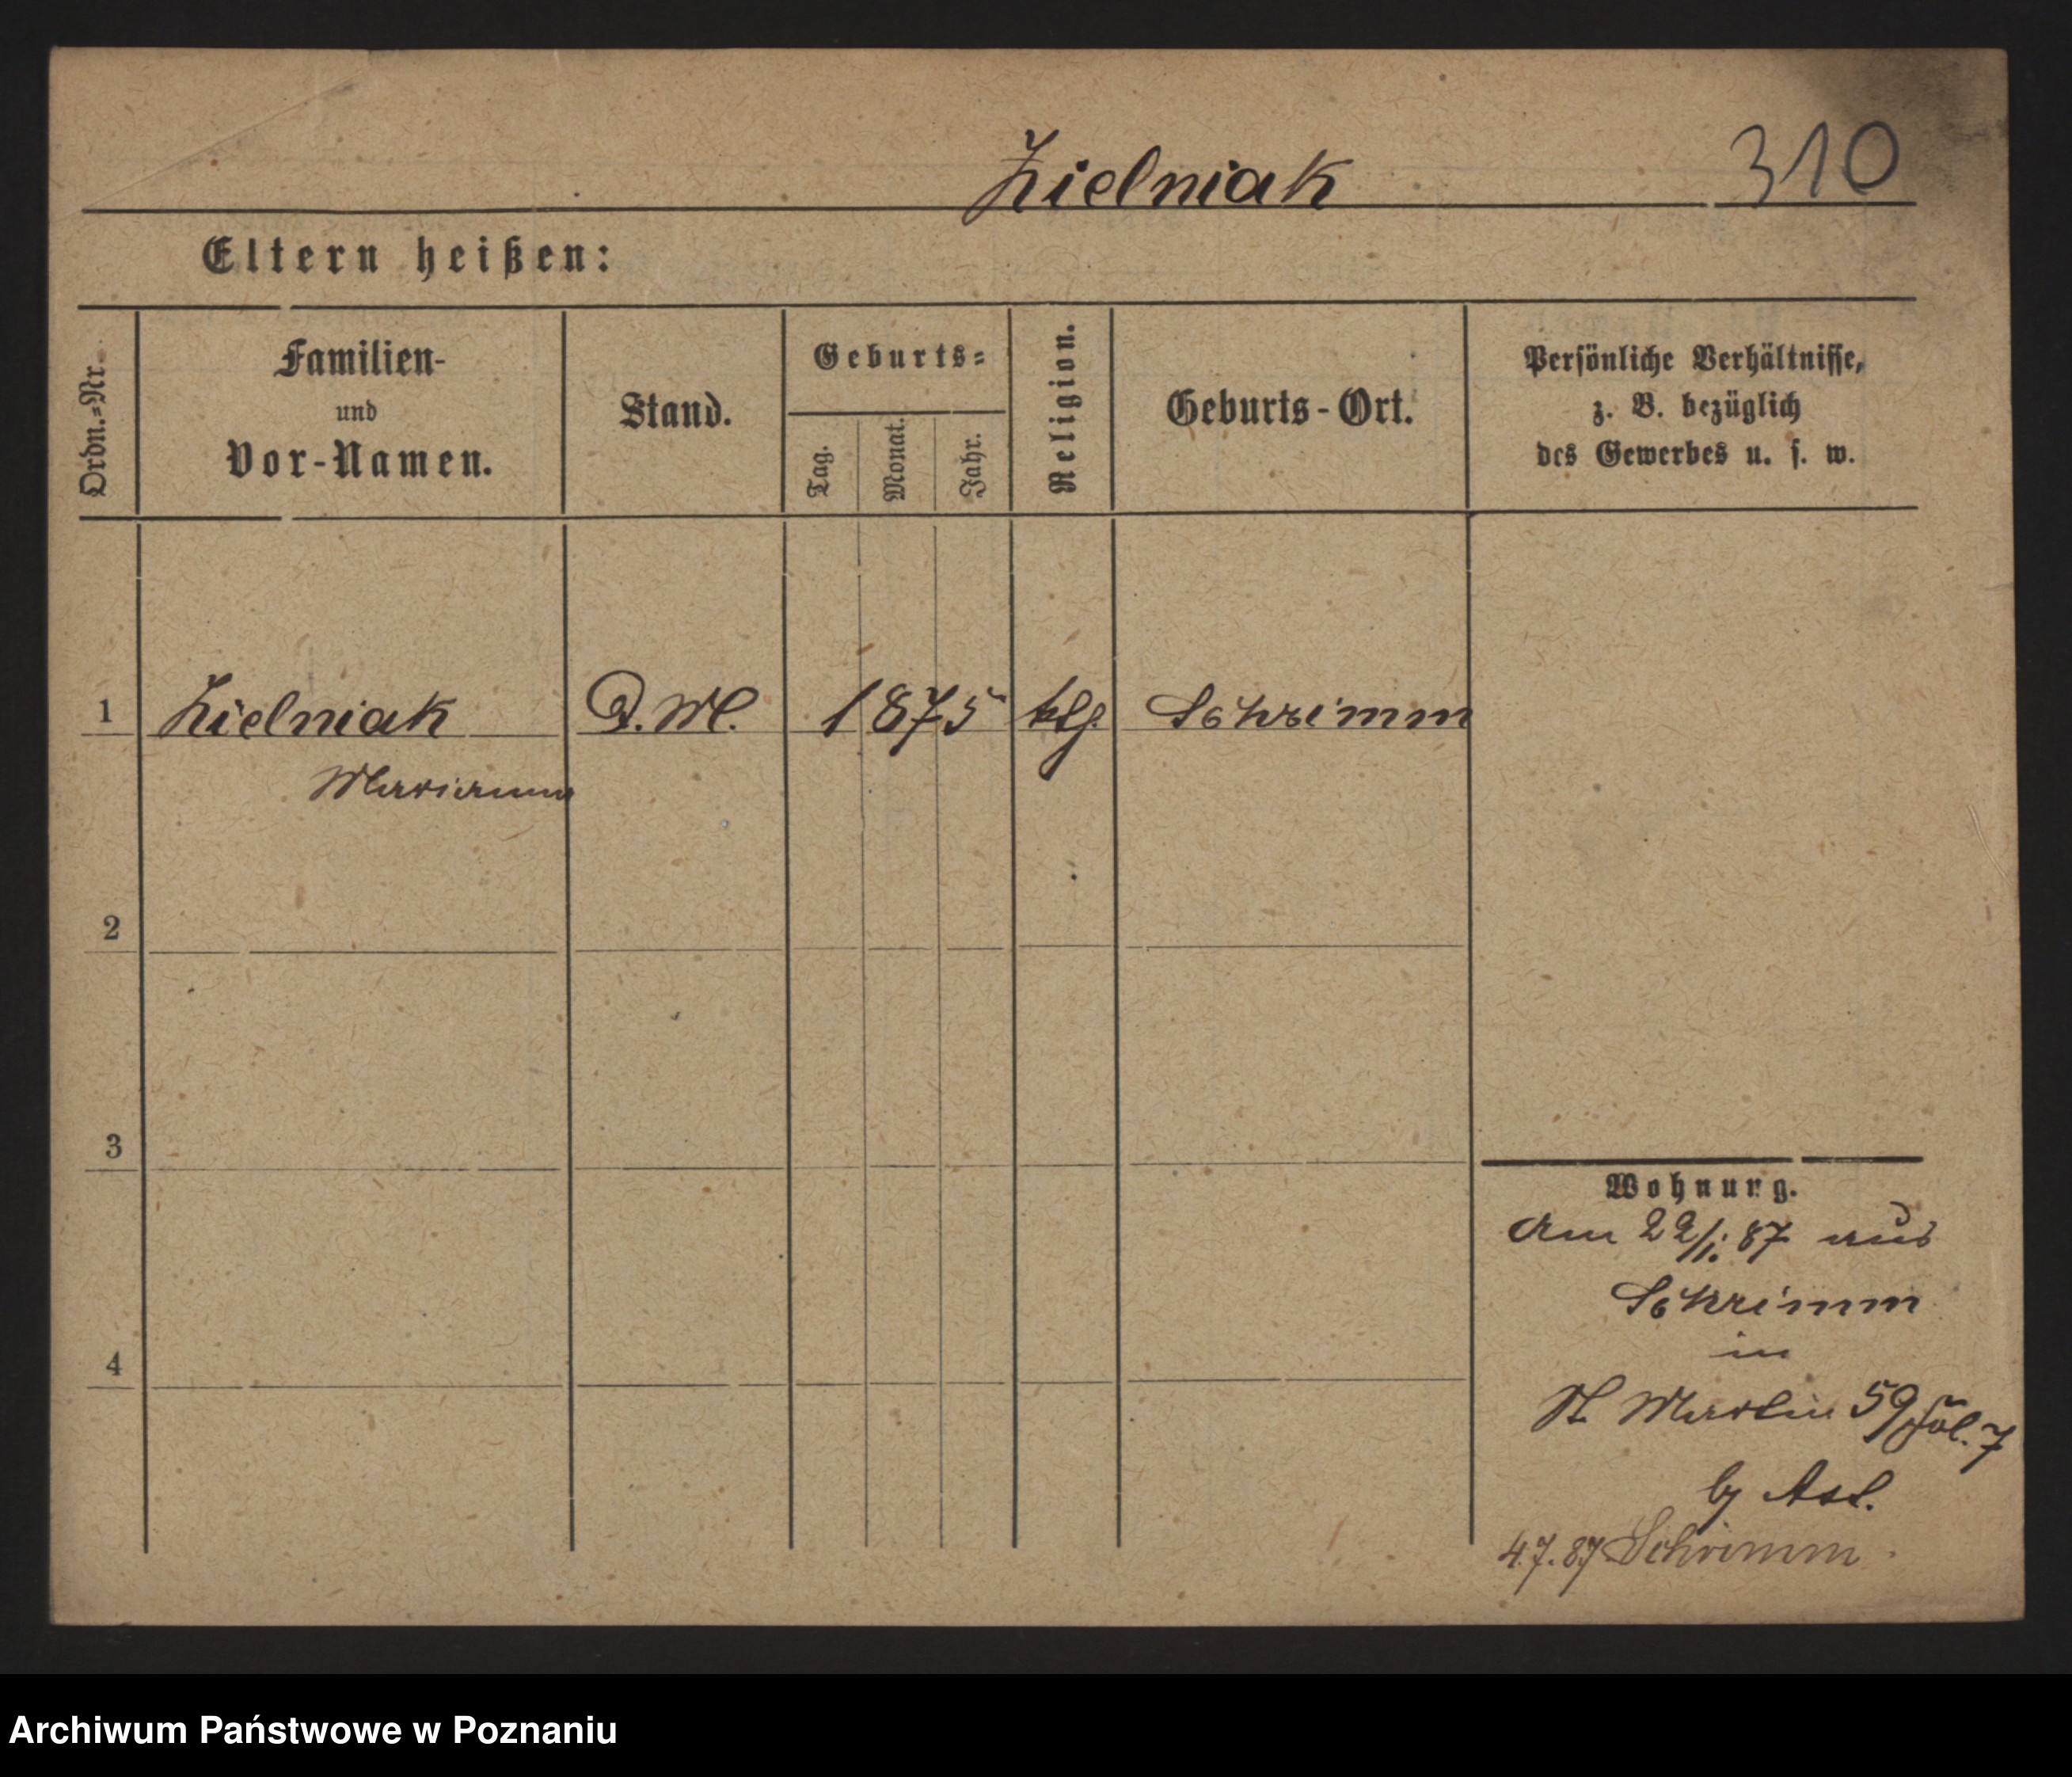 Zielniak 310
Eltern heißen:
Ordn.=Nr.
Familien-
und
Vor-Namen.
Stand.
Geburts=
Tag.
Monat.
Jahr.
Religion.
Geburts-Ort.
Persönliche Verhältnisse,
z. B. bezüglich
des Gewerbes u. s. w.
1 Zielniak D. M. 1875 ktj. Schrimm
Marianna
2
3
4
Wohnung.
Am 22/1. 87 aus
Schrimm
in
St Martin 59
by Ast.
4.7.87 Schrimm
Archiwum Państwowe w Poznaniu